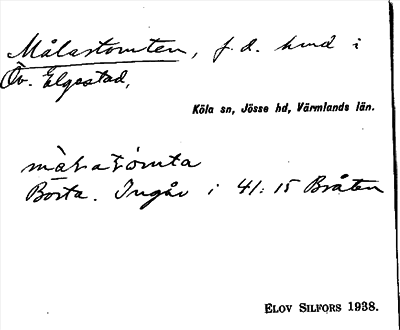 Målastomten, f.d. hmd i
Öv. Elgsstad,
Köla sn, Jösse hd, Värmlands län.
màɫatómta
Borta. Ingår i 41:15 Bråten
ELOV SILFORS 1938.